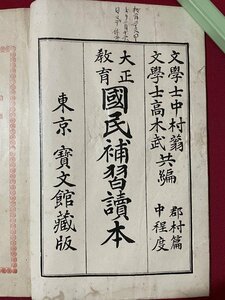 文學士中村蓊
文學士高木武
共編
郡村篇
中程度
大正
教育
國民補習讀本
東京 寶文館藏版